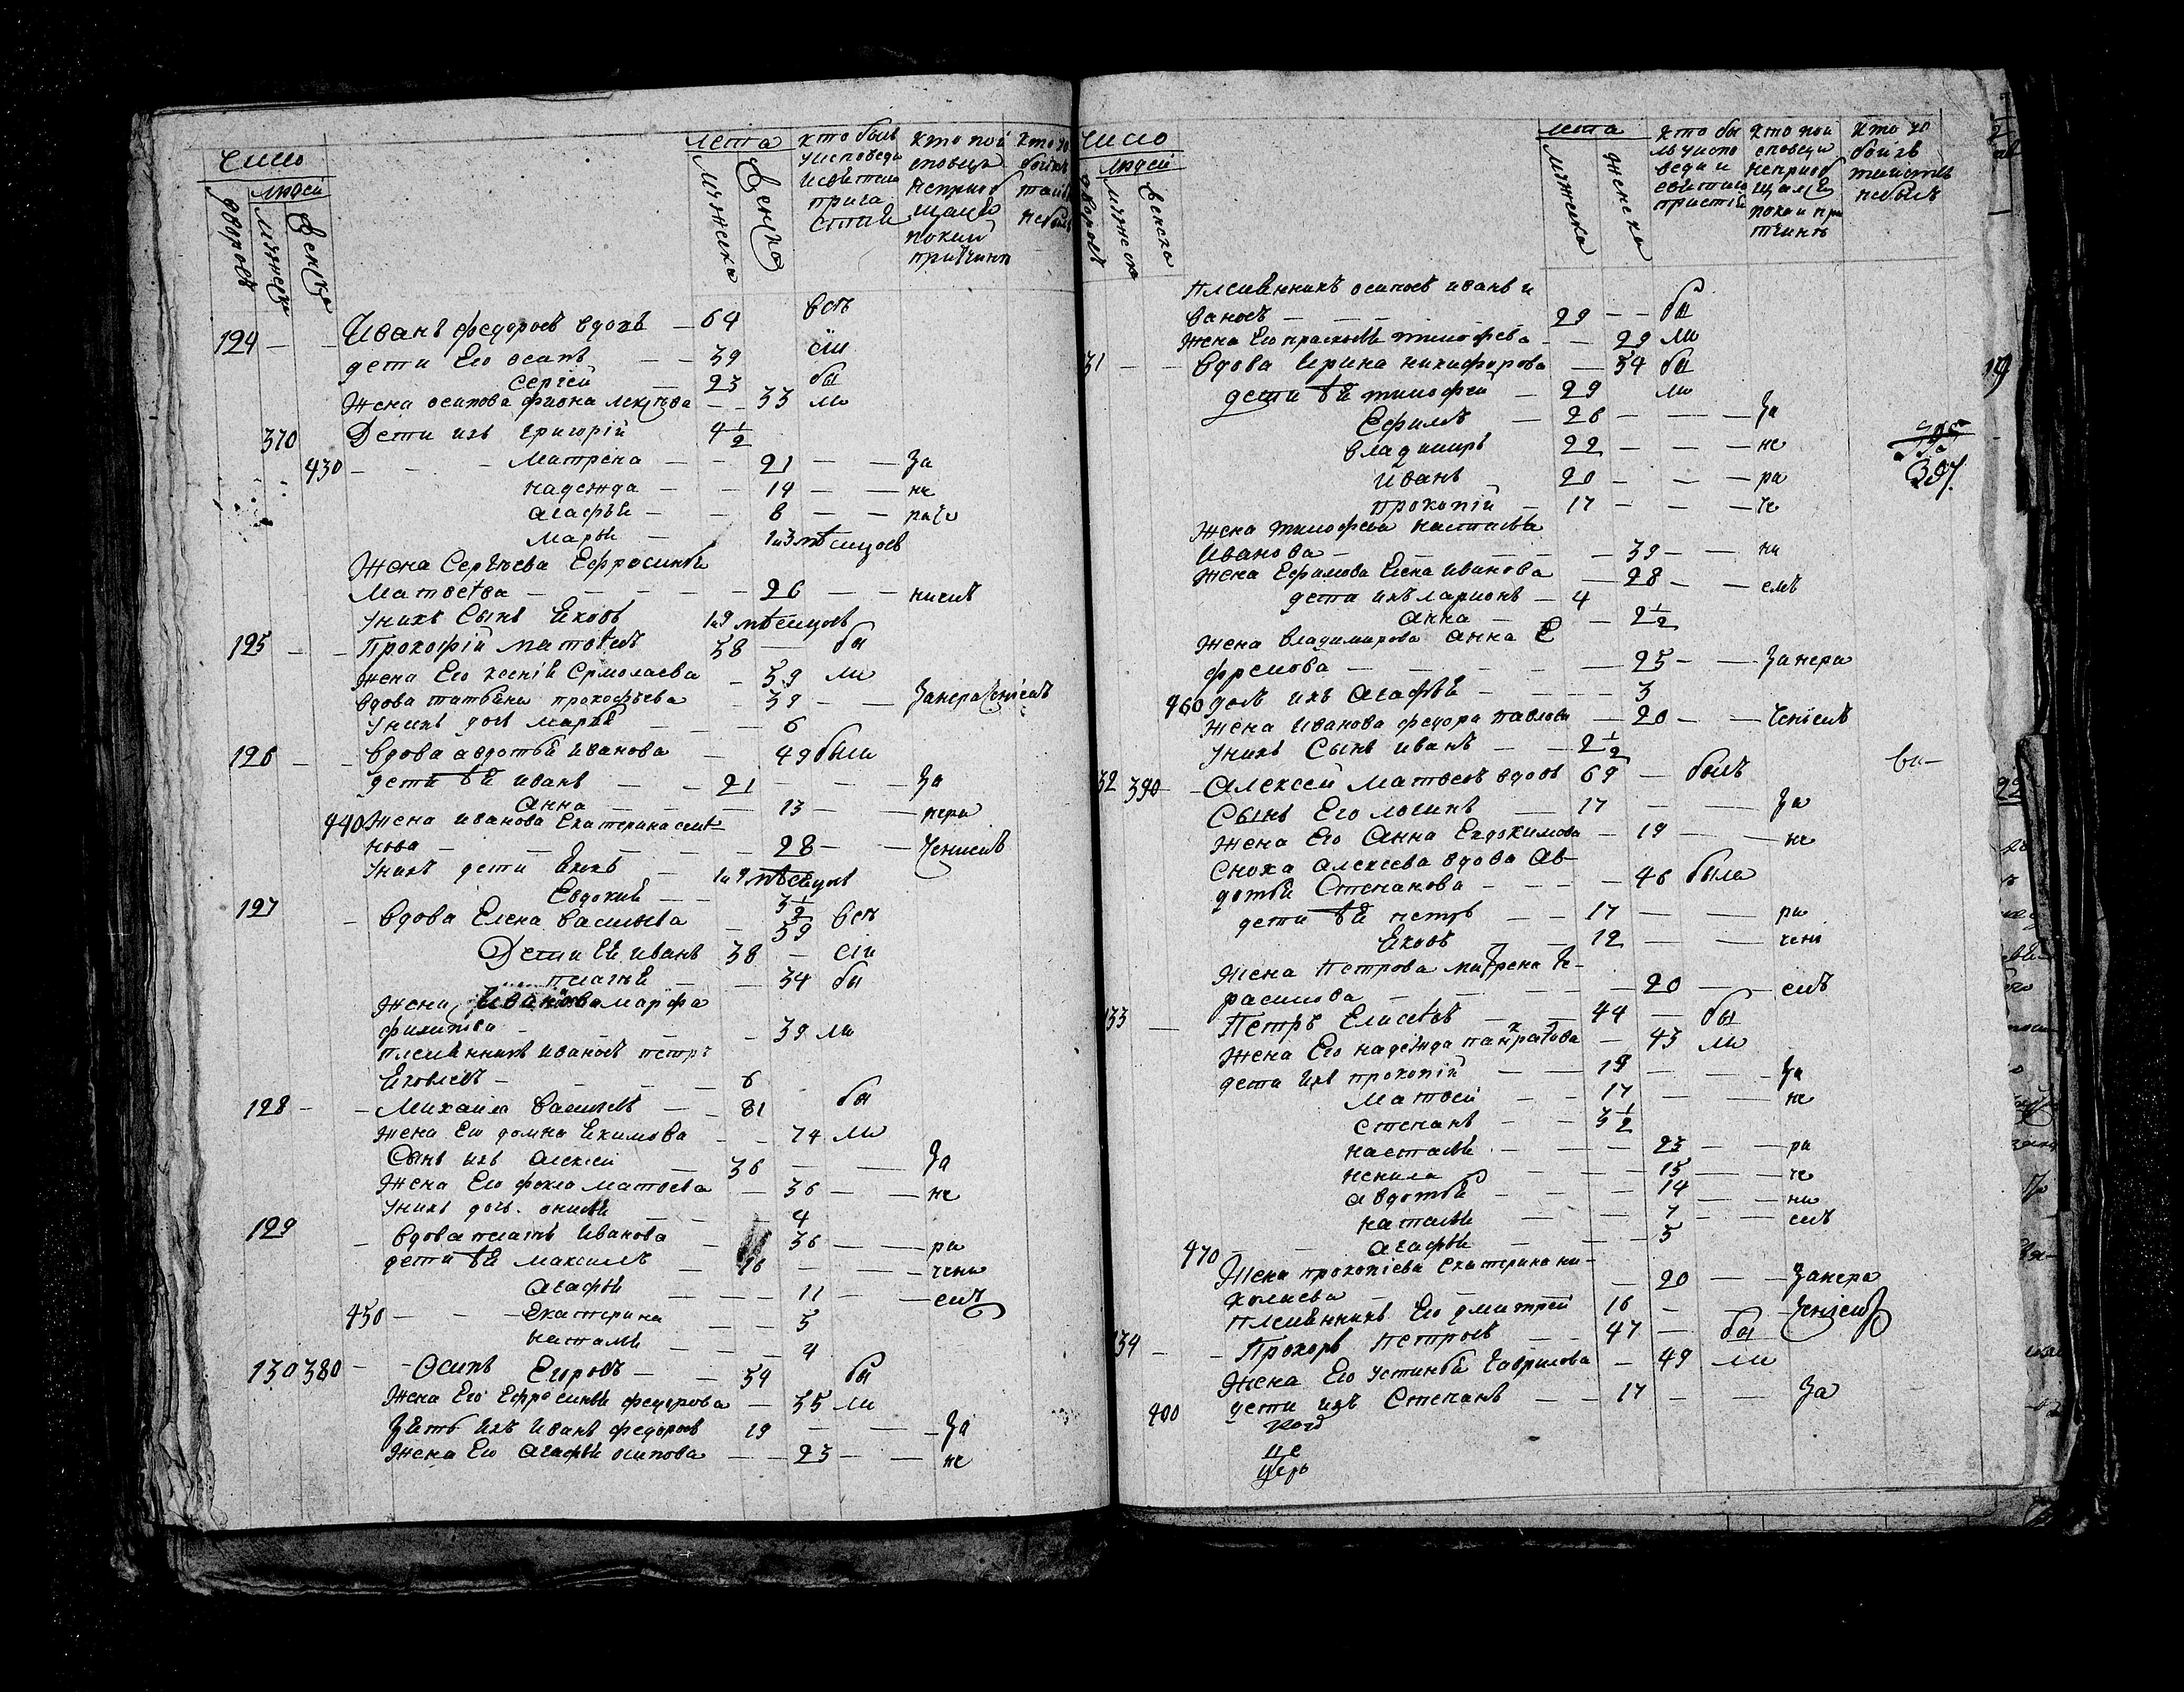 число
людей
дворовъ
мужеска
женска
лета
мужеска
женска
кто былъ
уисповеди
и светаго
прича
стия
кто по и
споведи
неприоб
щался
покий
притчине
кто у о
боихъ
таин
небылъ
124 — Иванъ федоровъ вдовъ — 64 всѣ
дети Его осипъ — — 39 сии
Сергей — 23 бы
Жена осипова фиона — — 33 ли
370 Дети ихъ григорій 4 1/2
430 — — — Матрена — — 21 — — За
надежда — — 14 — — не
агафья — — 8 — — раче
марья — 1 и 3 мѣсяцовъ
Жена Сергѣева Ефросинья
Матвѣева — — — — — 26 — — ниемъ
Унихъ Сынъ Яковъ 1 и 9 мѣсяцовъ
125 — — Прокофій матвѣевъ 58 — бы
Жена Его ксенія Ермолаева — 59 ли
Вдова татьяна прокофьева — 39 — — Занерачениемъ
Унихъ дочь марья — — 6
126 — — Вдова авдотья Иванова — 49 были
дети Ея иванъ — — 21 — — — За
Анна — — — 13 — — нера
440 Жена иванова Екатерина семе
нова — — — — — — 28 — — чениемъ
Унихъ дети Яковъ — 1 и 9 мѣсяцовъ
Евдокия — — 3 1/2
127 — Вдова Елена васильева — 59 всѣ
Дети Ея иванъ 38 — сии
пелагея — — 34 бы
Жена Иванова марфа
филипова — — — — — 39 ли
племянникъ ивановъ петръ
Яковлевъ — — — — — 6
128 — — Михаила васильевъ — — 81 бы
Жена Его домна Екимова — — 74 ли
Сынъ ихъ алексей — 36 — — За
Жена Его фекла матвеева — 36 — — не
Унихъ дочь — — — 4
129 — Вдова Иванова — 36 — — ра
дети Ея максимъ — 16 — — чени
агафья — — — 11 — — емъ
450 — — — Екатерина — — 5
наталья — — — 4
130 380 — — Осипъ Егоровъ — — 54 бы
Жена Его Ефросинья федорова — 55 ли
Зять ихъ иванъ федоровъ 19 — — — За
Жена Его агафья осипова — — 23 — — не
число
людей
дворовъ
мужеска
женска
лета
мужеска
женска
кто бы
лъ уиспо
веди и
светаго
пристия
кто по и
споведи
неприоб
щался
покой при
тчине
кто у о
боихъ
таинствъ
небылъ
Племянникъ осиповъ иванъ и
вановъ — — — 29 — — бы
Жена Его прасковья тимофеева — — 29 ли
31 — — Вдова Ирина никифорова — 54 бы
дети Ея тимофей — 29 ли
Ефимъ — 26 — — — За
владимиръ 22 — — — не
Иванъ — 20 — — — ра
прокопій — 17 — — — че
395
397
Жена тимофеева настасья
Иванова — — — — — 39 — — ни
Жена Ефимова Елена иванова — 28 — — емъ
дети ихъ ларионъ — 4
Анна — — 2 1/2
Жена владимирова анна Е
фремова — — — — — 25 — — Занера
460 дочь ихъ агафья — — — — 3
Жена иванова федора павлова — 20 — — чениемъ
Унихъ Сынъ иванъ — — 2 1/2
32 390 — Алексей Матвеевъ вдовъ 69 — былъ
Сынъ Его логинъ — — 17 — — За
Жена Его Анна Евдокимова — 19 — — не
Сноха алексеева вдова ав-
дотья Степанова — — — — 46 была
дети Ея петръ — — 17 — — ра
Яковъ — — 12 — — чени
Жена петрова матрена Ге-
расимова — — — — — 20 — — емъ
133 — Петръ Елисѣевъ — — 44 — бы
Жена Его надежда панкратова — 43 ли
дети ихъ прокопій — — 19 — — За
Матвей — — 17 — — не
Степанъ — — 3 1/2
настасья — — — 23 — — ра
ненила — — — 15 — — че
авдотья — — — 14 — — ни
наталья — — 7 — — емъ
470 — — агафья — — — 5
Жена прокопіева екатерина ни-
колаева — — 20 — — Занера
племянникъ Его дмитрей 16 — — чениемъ
134 — — Прохоръ петровъ — — 47 — бы
Жена Его Устинья гаврилова — 49 ли
400 дети ихъ Степанъ — — 17 — — За